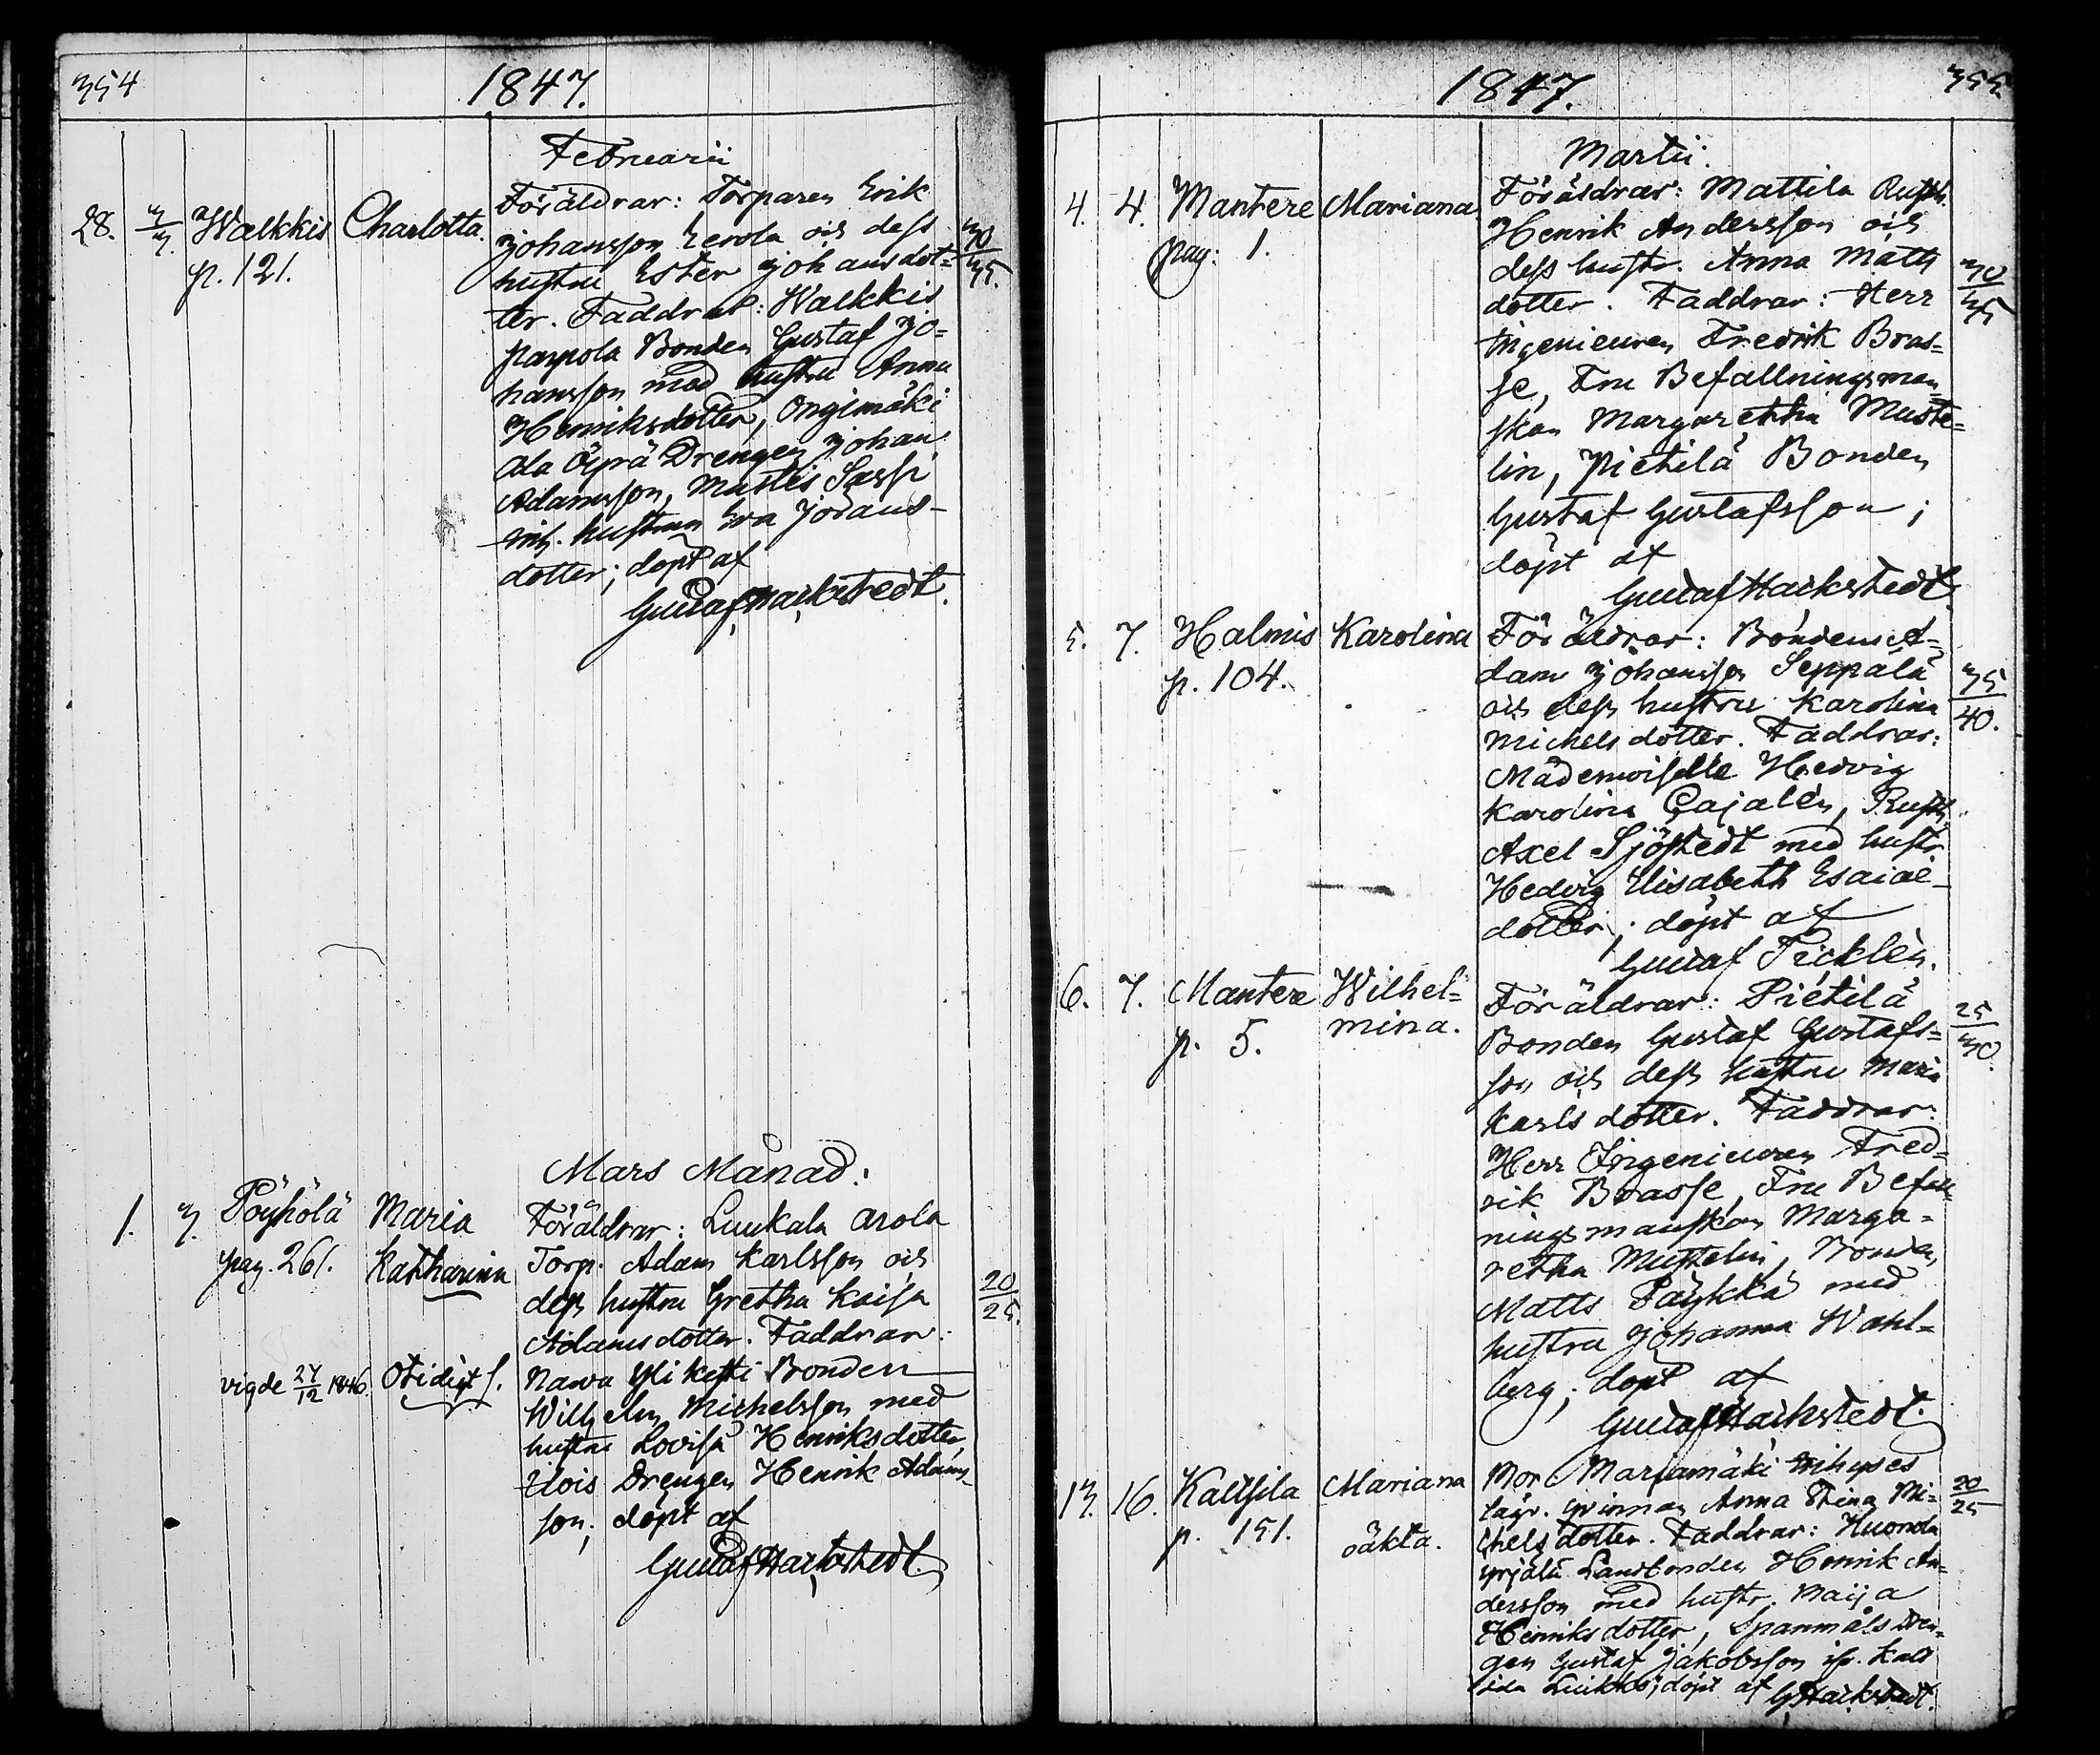 354
1847.
Februarii
28. 3/3. Walkkis Charlotta.
p. 121.
Föräldrar: Torparen Erik
Johansson Eerola och dess
hustru Ester Johansdot=
ter. Faddrar: Walkkis
Pappola Bonden Gustaf Jo=
hansson med hustru Anna
Henriksdotter, Ongimäki
Ala Äyrä Drengen Johan
Adamsson, Mattis Sassi
inh. hustrun Eva Johans-
dotter; döpt af
Gustaf Hackstedt.
30/35.
Mars Månad:
1. 3. Pöyhölä Maria
pag. 261. Katharina
vigde 27/12 1846. Otidigt f.
Föräldrar: Luukala Arola
Torp. Adam Karlsson och
dess hustru Gretha Kaisa
Adamsdotter. Faddrar:
Nawa Yli Kesti Bonden
Wilhelm Michelsson med
hustru Lovisa Henriksdotter,
Drengen Henrik Adams-
son; döpt af
Gustaf Hackstedt.
20/25.
1847.
355.
Martii.
4. 4. Mantere Mariana
pag: 1.
Föräldrar: Mattila Rusth.
Henrik Andersson och
dess hustr. Anna Matts
dotter. Faddrar: Herr
Ingenieuren Fredrik Bras=
se, Fru Befallningsman
skan Margaretha Muste=
lin, Pietilä Bonden
Gustaf Gustafsson;
döpt af
Gustaf Hackstedt.
30/35
5. 7. Halmis Karolina
p. 104.
Föräldrar: Bonden A=
dam Johansson Seppälä
och dess hustru Karolina
Michelsdotter. Faddrar:
Mademoiselle Hedvig
Karolina Cajalén, Rusth.
Axel Sjöstedt med hustr.
Hedvig Elisabeth Esaiæ-
dotter; döpt af
Gustaf Ticklén.
35/40.
6. 7. Mantere Wilhel=
p. 5. mina.
Föräldrar: Pietilä
Bonden Gustaf Gustafs=
son och dess hustru Maria
Karlsdotter. Faddrar:
Herr Ingenieuren Fred=
rik Brasse, Fru Befall
ningsmanskan Marga=
retha Mustelin, Bonden
Matts Päykkä med
hustru Johanna Wahl=
berg; döpt af
Gustaf Hackstedt.
25/30.
13. 16. Kaltsila Mariana
p. 151. oäkta.
Mor Marjamäki inhyses
lägr. qvinnan Anna Stina Mi=
chelsdotter. Faddrar: Huonola
Yrjälä Landbonden Henrik An=
dersson med hustr. Maija
Henriksdotter, Spanmåls Dren=
gen Gustaf Jakobsson
döpt af G Hackstedt.
20/25